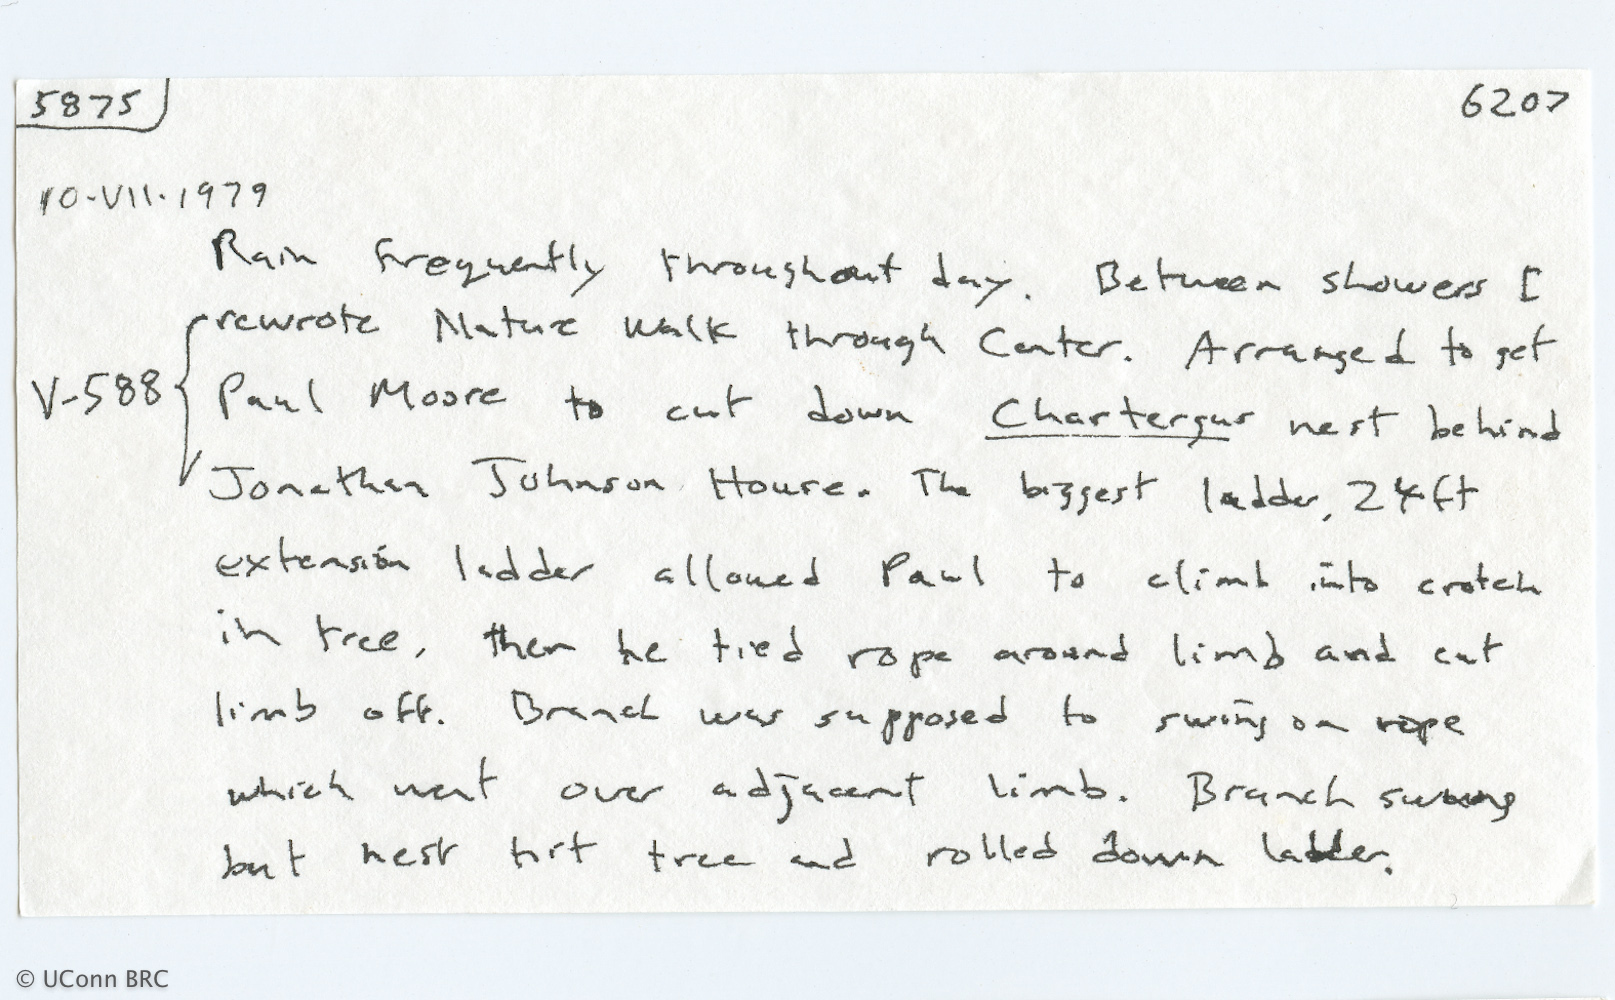 5875
6207
10-VII-1979
Rain frequently throughout day. Between showers I
rewrote Nature Walk through Center. Arranged to get
V-588
Paul Moore to cut down Chartergus nest behind
Jonathan Johnson House. The biggest ladder, 24ft
extension ladder allowed Paul to climb into crotch
in tree, then he tied rope around limb and cut
limb off. Branch was supposed to swing on rope
which went over adjacent limb. Branch swung
but nest hit tree and rolled down ladder.
© UConn BRC